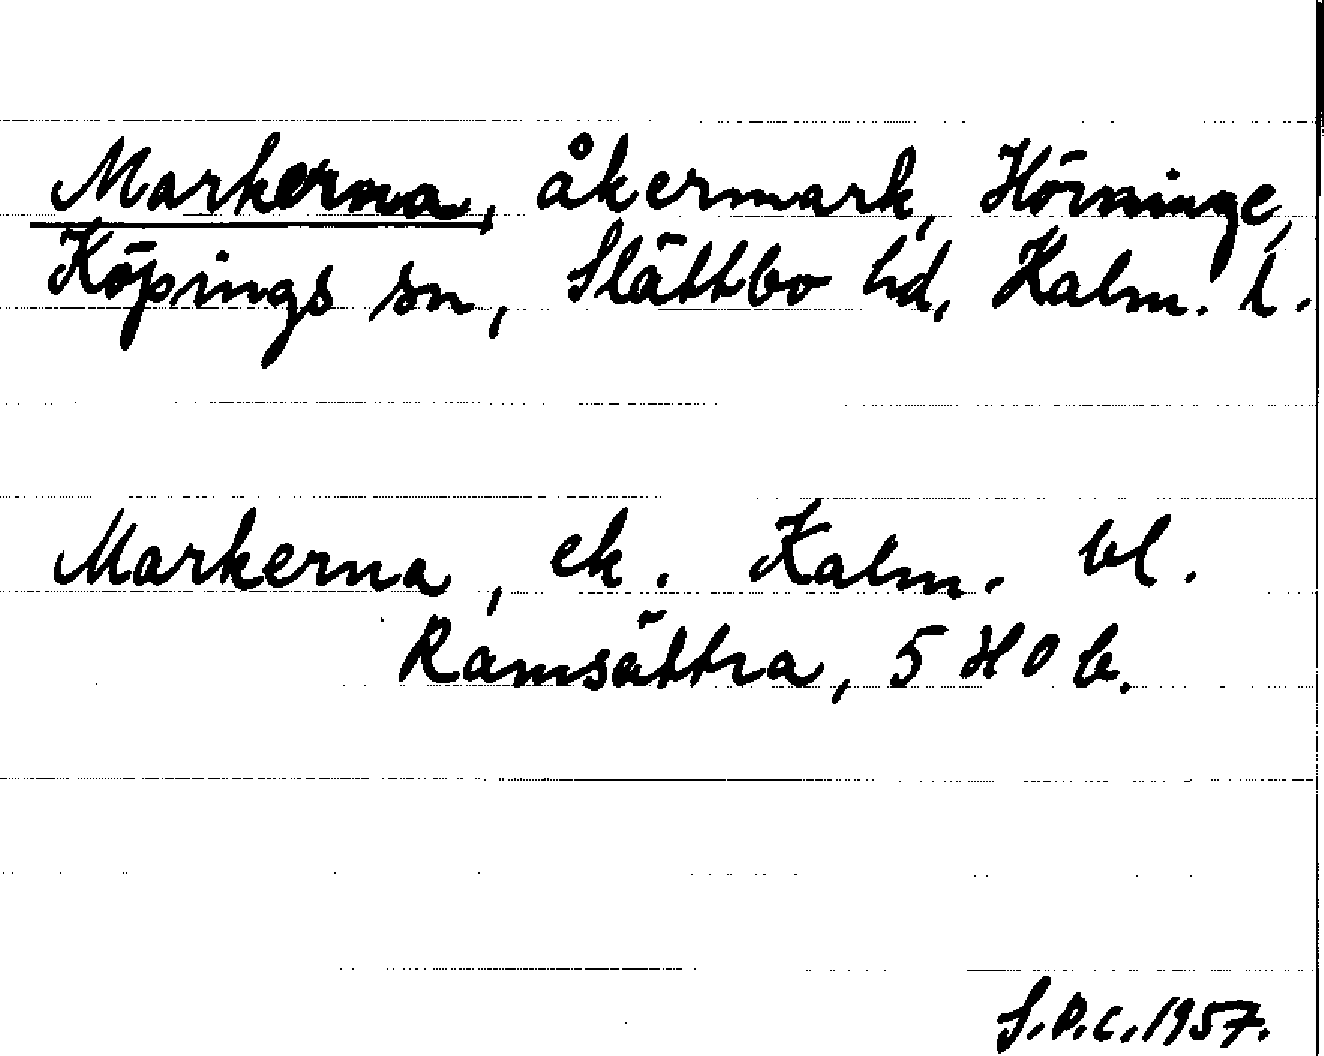 Markerna, åkermark, Hörninge,
Köpings sn, Slättbo hd, Kalm. l.
Markerna, ek. Kalm. bl.
Ramsättra, 5 H 0 b.
S.P.C. 1957.